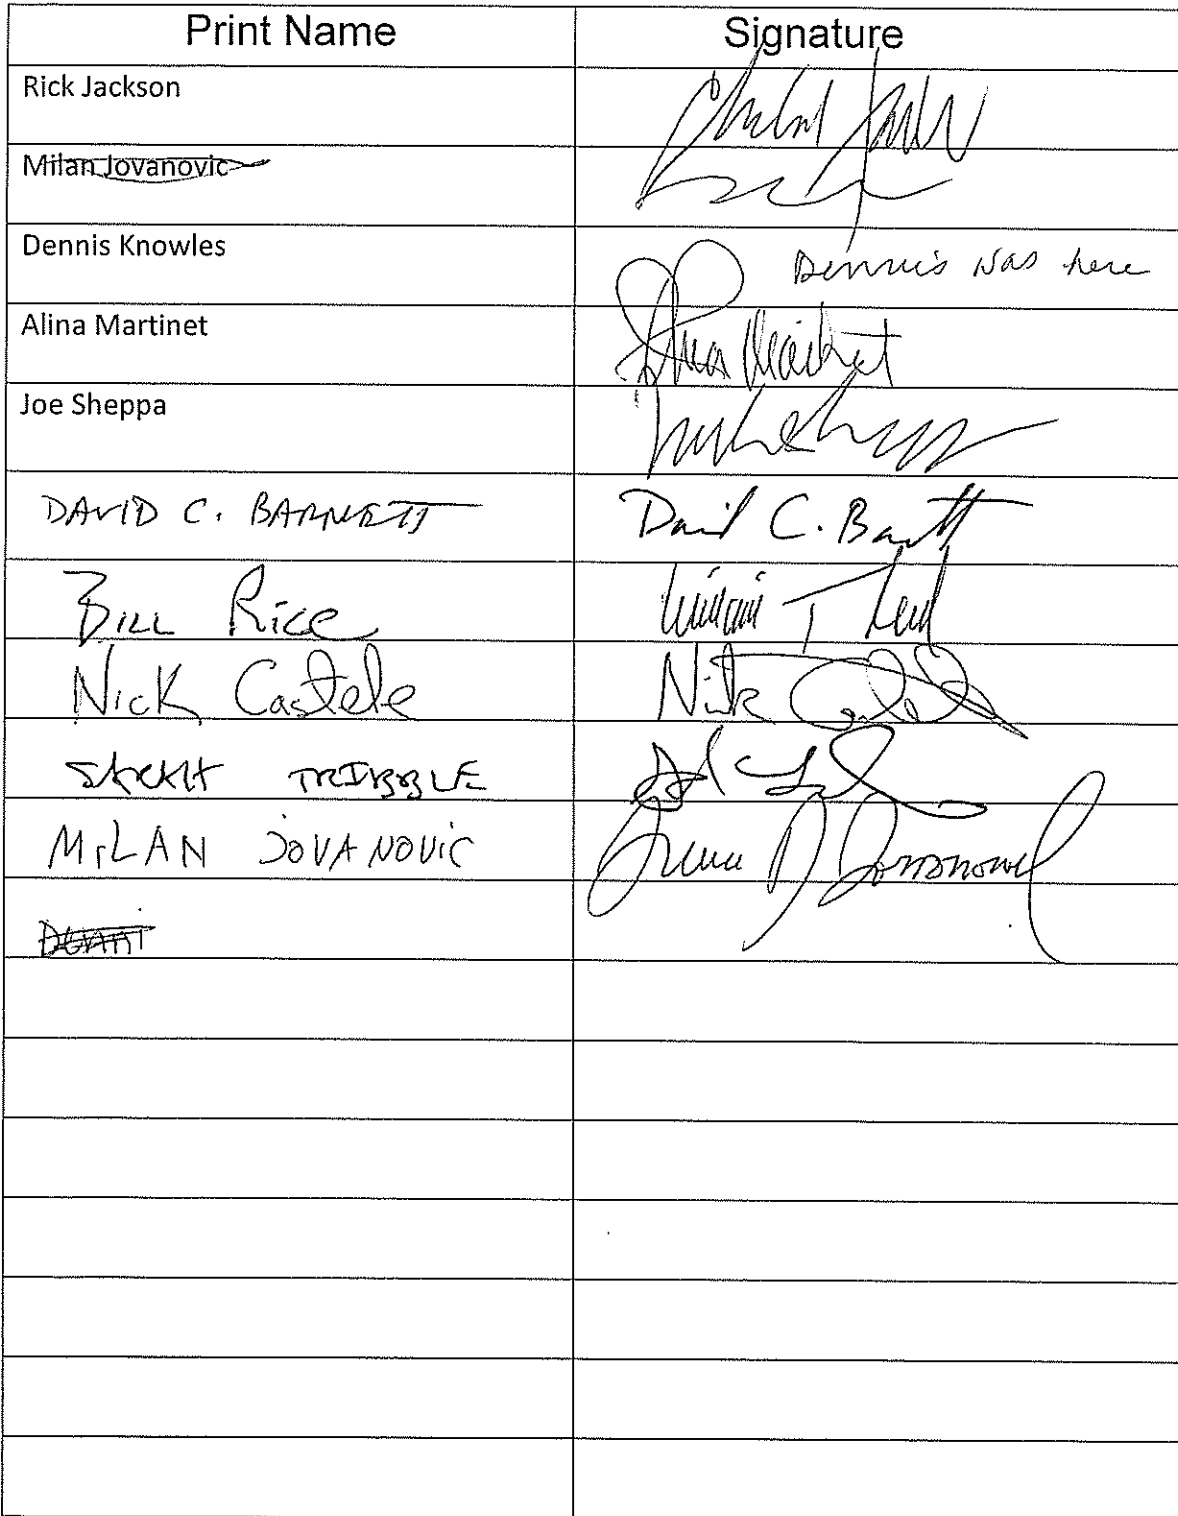 Print Name Signature
Rick Jackson
Milan Jovanovic
Dennis Knowles Dennis was here
Alina Martinet
Joe Sheppa
DAVID C. BARNETT David C. Barnett
BILL RICE William T
Nick Castele Nick
SARAH TRIBBLE
MILAN JOVANOVIC
Denni